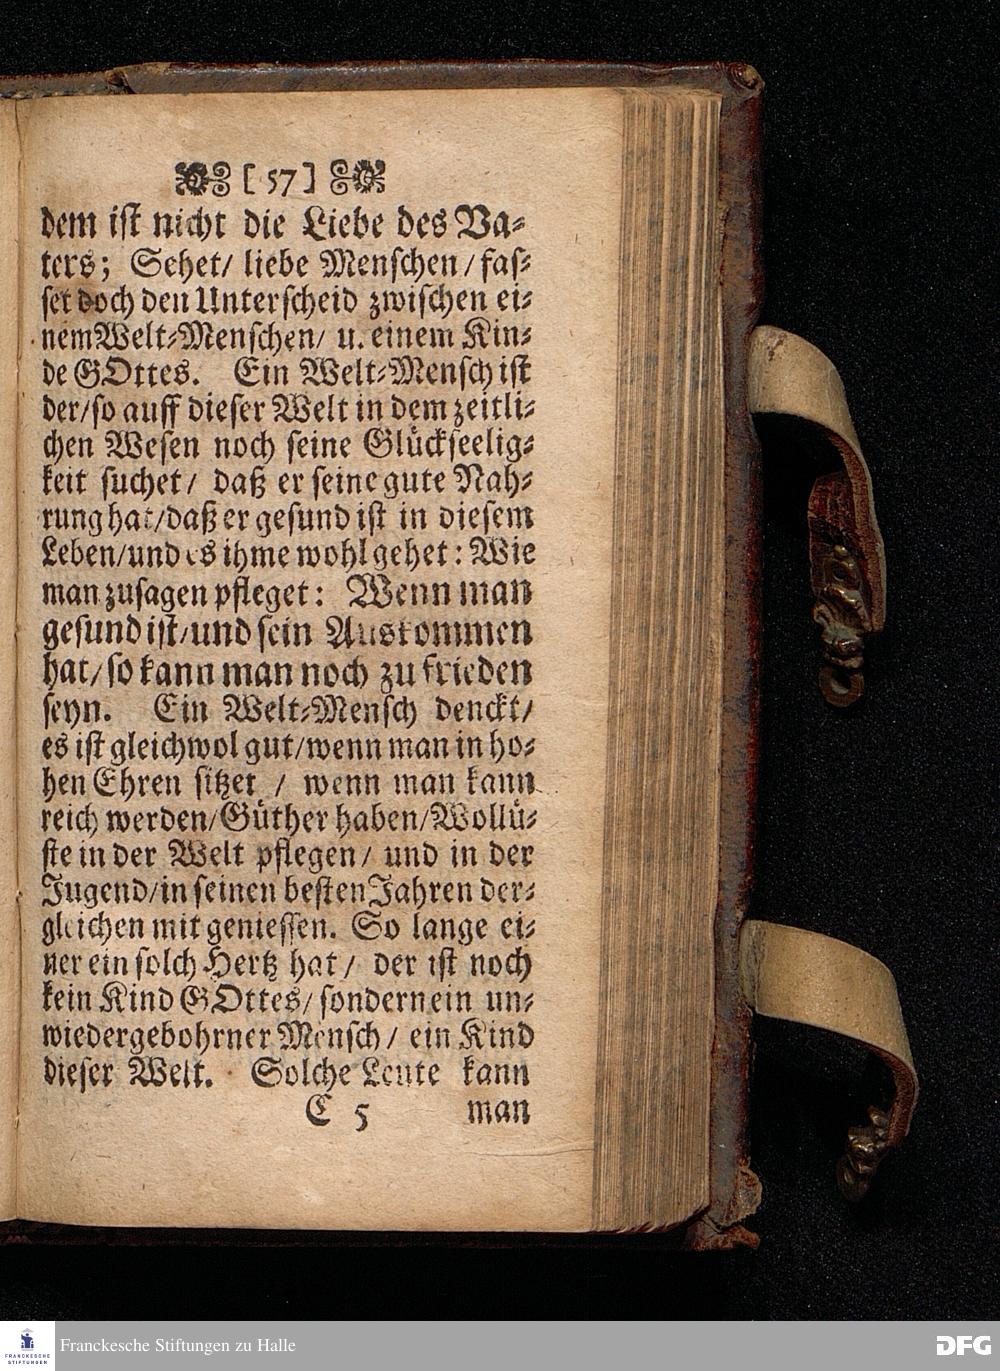 [ 57 ]
dem ist nicht die Liebe des Va-
ters; Sehet/ liebe Menschen/ fas-
set doch den Unterscheid zwischen ei-
nem Welt-Menschen/ u. einem Kin-
de GOttes. Ein Welt-Mensch ist
der/ so auff dieser Welt in dem zeitli-
chen Wesen noch seine Glückseelig-
keit suchet/ daß er seine gute Nah-
rung hat/ daß er gesund ist in diesem
Leben/ und es ihme wohl gehet: Wie
man zusagen pfleget: Wenn man
gesund ist/ und sein Auskommen
hat/ so kann man noch zu frieden
seyn. Ein Welt-Mensch denckt/
es ist gleichwol gut/ wenn man in ho-
hen Ehren sitzet / wenn man kann
reich werden/ Güther haben/ Wollü-
ste in der Welt pflegen/ und in der
Jugend/ in seinen besten Jahren der-
gleichen mit geniessen. So lange ei-
ner ein solch Hertz hat/ der ist noch
kein Kind GOttes/ sondern ein un-
wiedergebohrner Mensch/ ein Kind
dieser Welt. Solche Leute kann
C 5 man
FRANCKESCHE STIFTUNGEN
Franckesche Stiftungen zu Halle
DFG